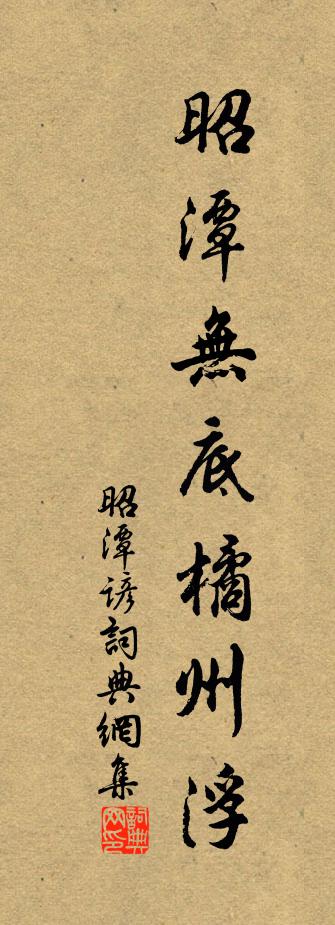 昭潭無底橘州浮
昭潭諺詞典網集
詞典
网印